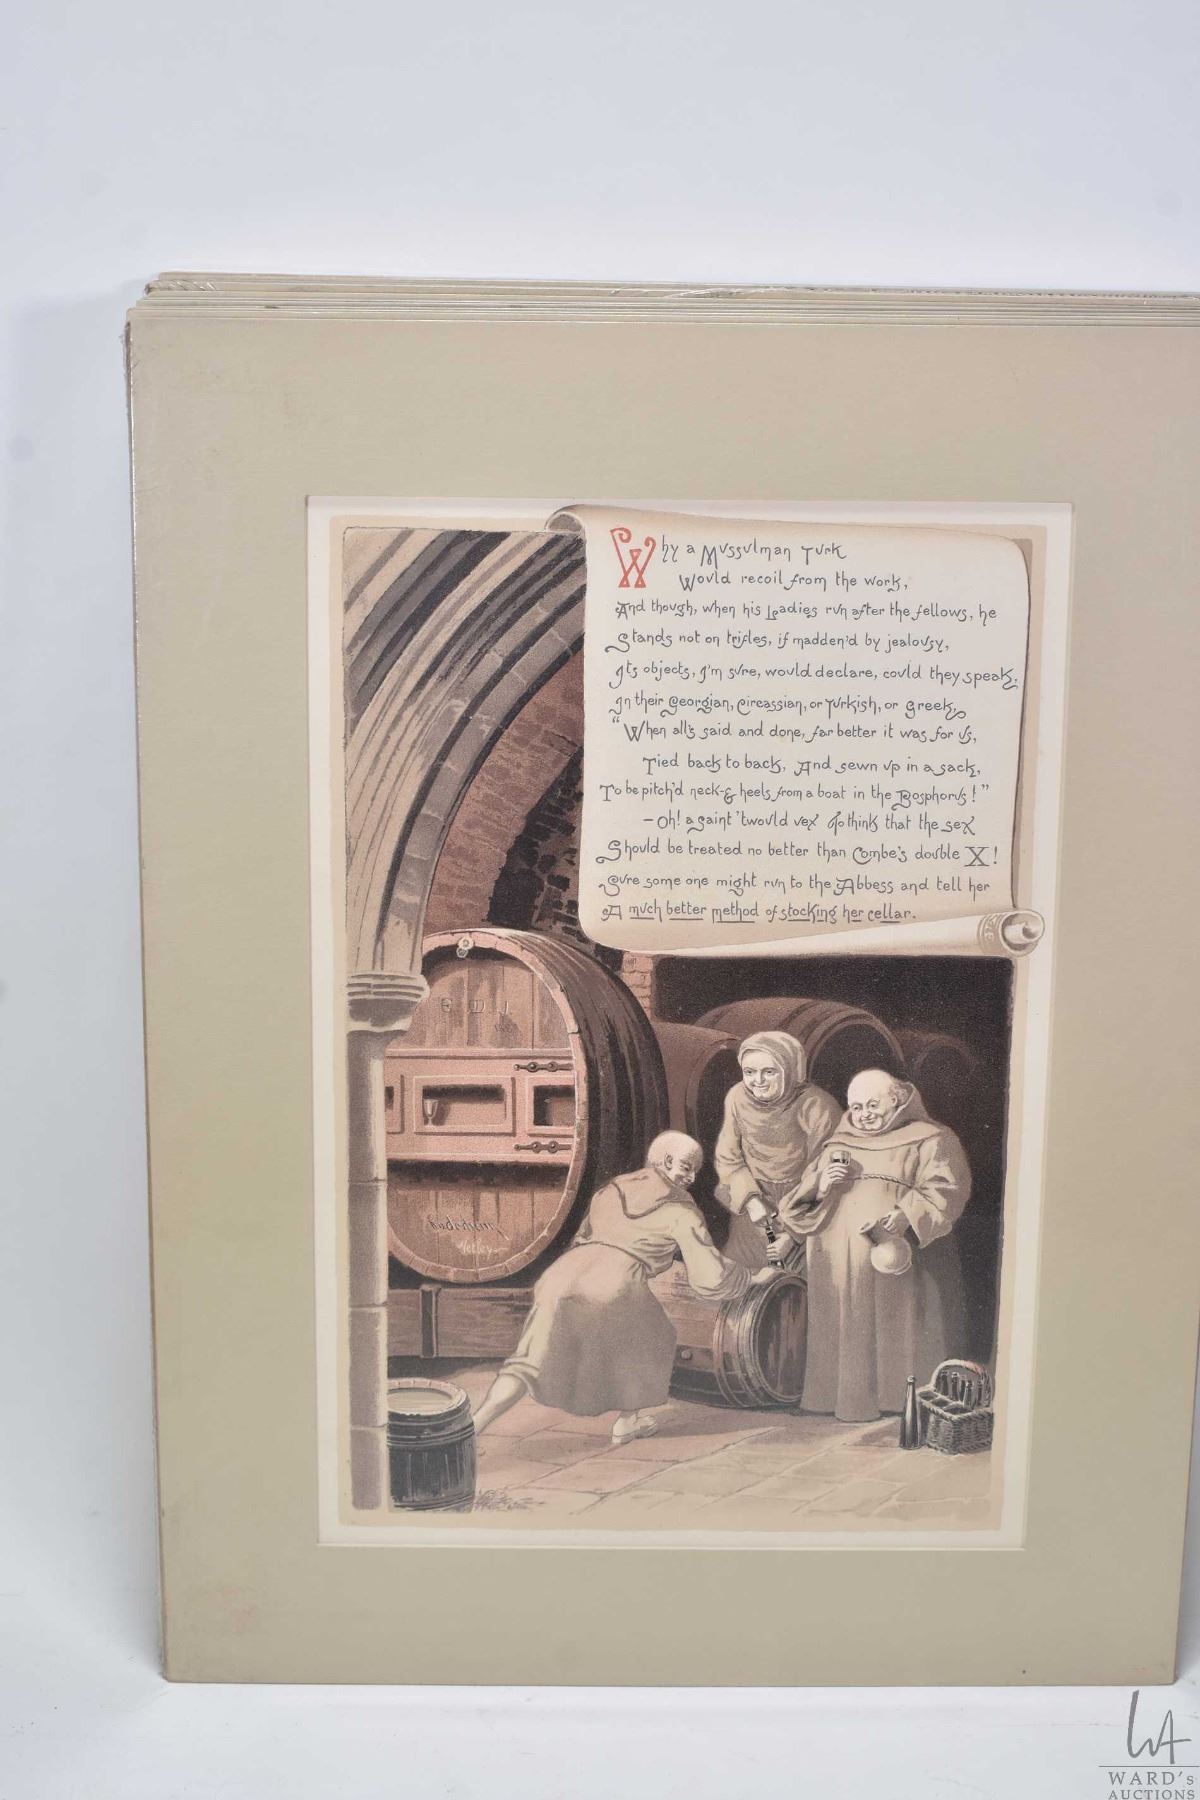 Why a Mussulman Turk
Would recoil from the work,
And though, when his Ladies run after the fellows, he
Stands not on trifles, if madden'd by jealousy,
Its objects, I'm sure, would declare, could they speak,
In their Georgian, Circassian, or Turkish, or Greek,
"When all's said and done, far better it was for us,
Tied back to back, And sewn up in a sack,
To be pitch'd neck-& heels from a boat in the Bosphorus!"
-Oh! a saint 'twould vex To think that the sex
Should be treated no better than Combe's double X!
Sure some one might run to the Abbess and tell her
A much better method of stocking her cellar.
Netley
WARD's
AUCTIONS